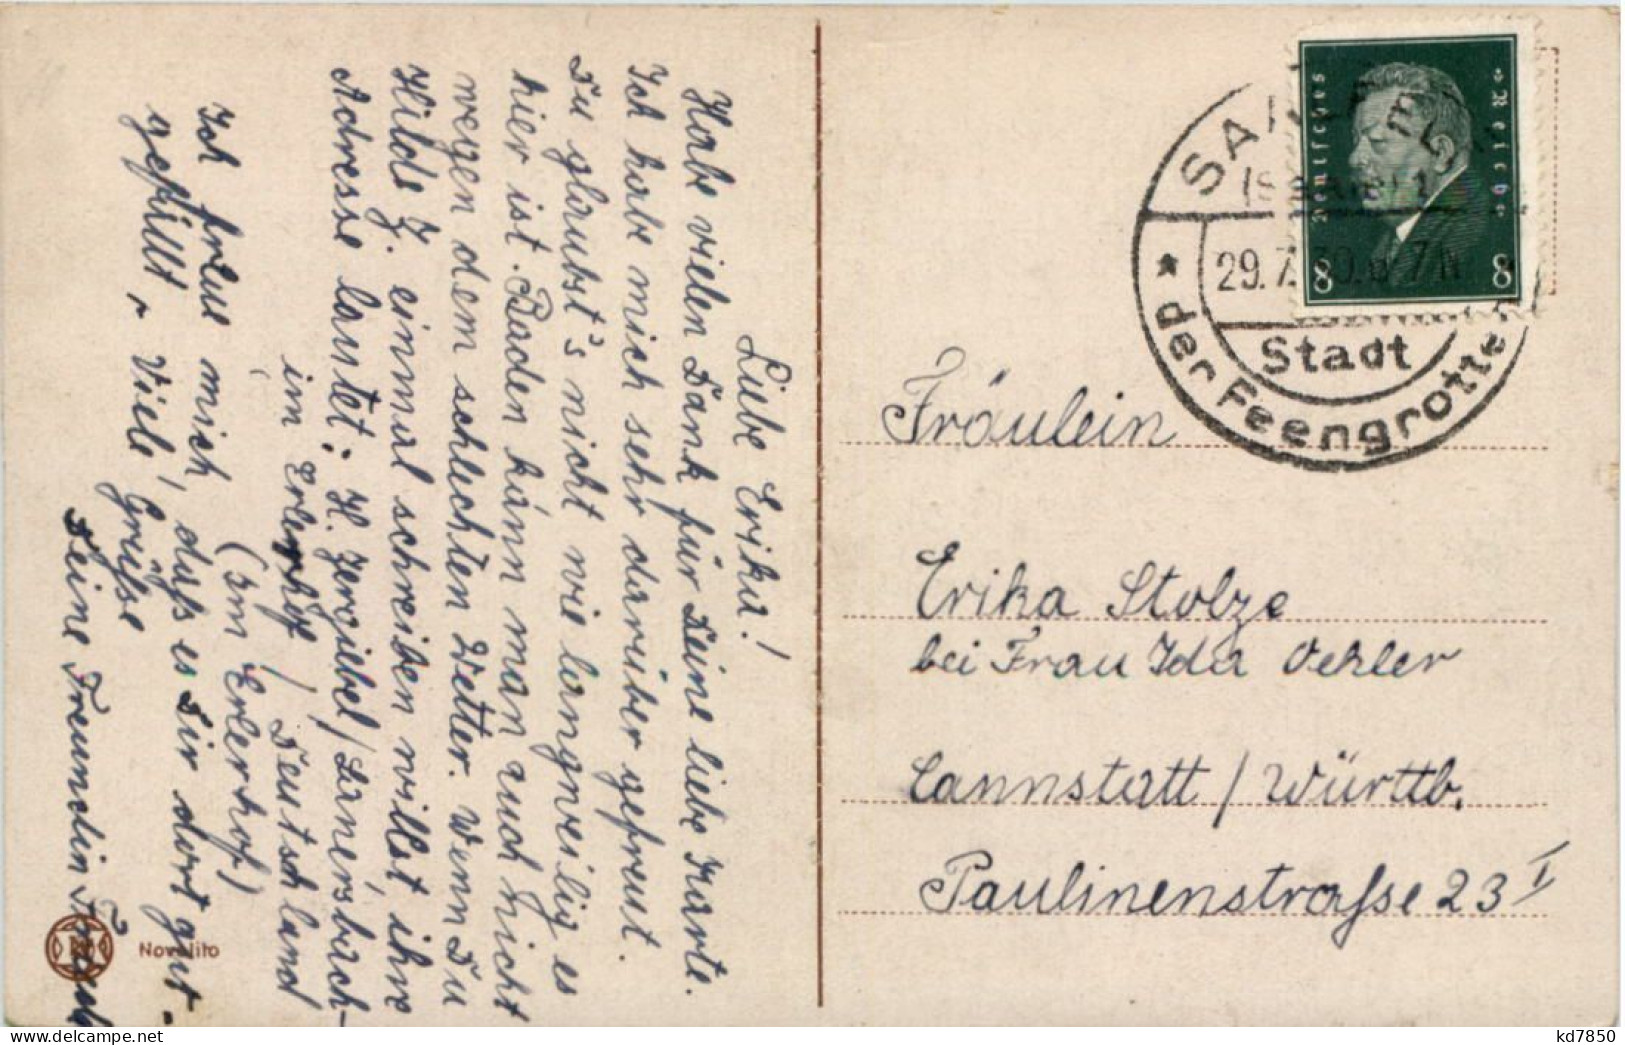 Liebe Erika!
Habe vielen Dank für Deine liebe Karte.
Ich habe mich sehr darüber gefreut.
Du glaubst's nicht wie langweilig es
hier ist. Baden kann man auch nicht
wegen dem schlechten Wetter. Wenn Du
Hilde Z. einmal schreiben willst, ihre
Adresse lautet: H. Zergiebel /
im Erlenhof / Deutschland
(Im Erlerhof)
Ich freue mich, dass es Dir dort gut
gefällt. Viele Grüsse
Deine Freundin
Novolito
Deutsches Reich
8 8
SAA
29.7.30.
Stadt
* der Feengrotten
Fräulein
Erika Stolze
bei Frau Ida Oehler
Cannstatt / Württb.
Paulinenstrasse 23 I
kd7850